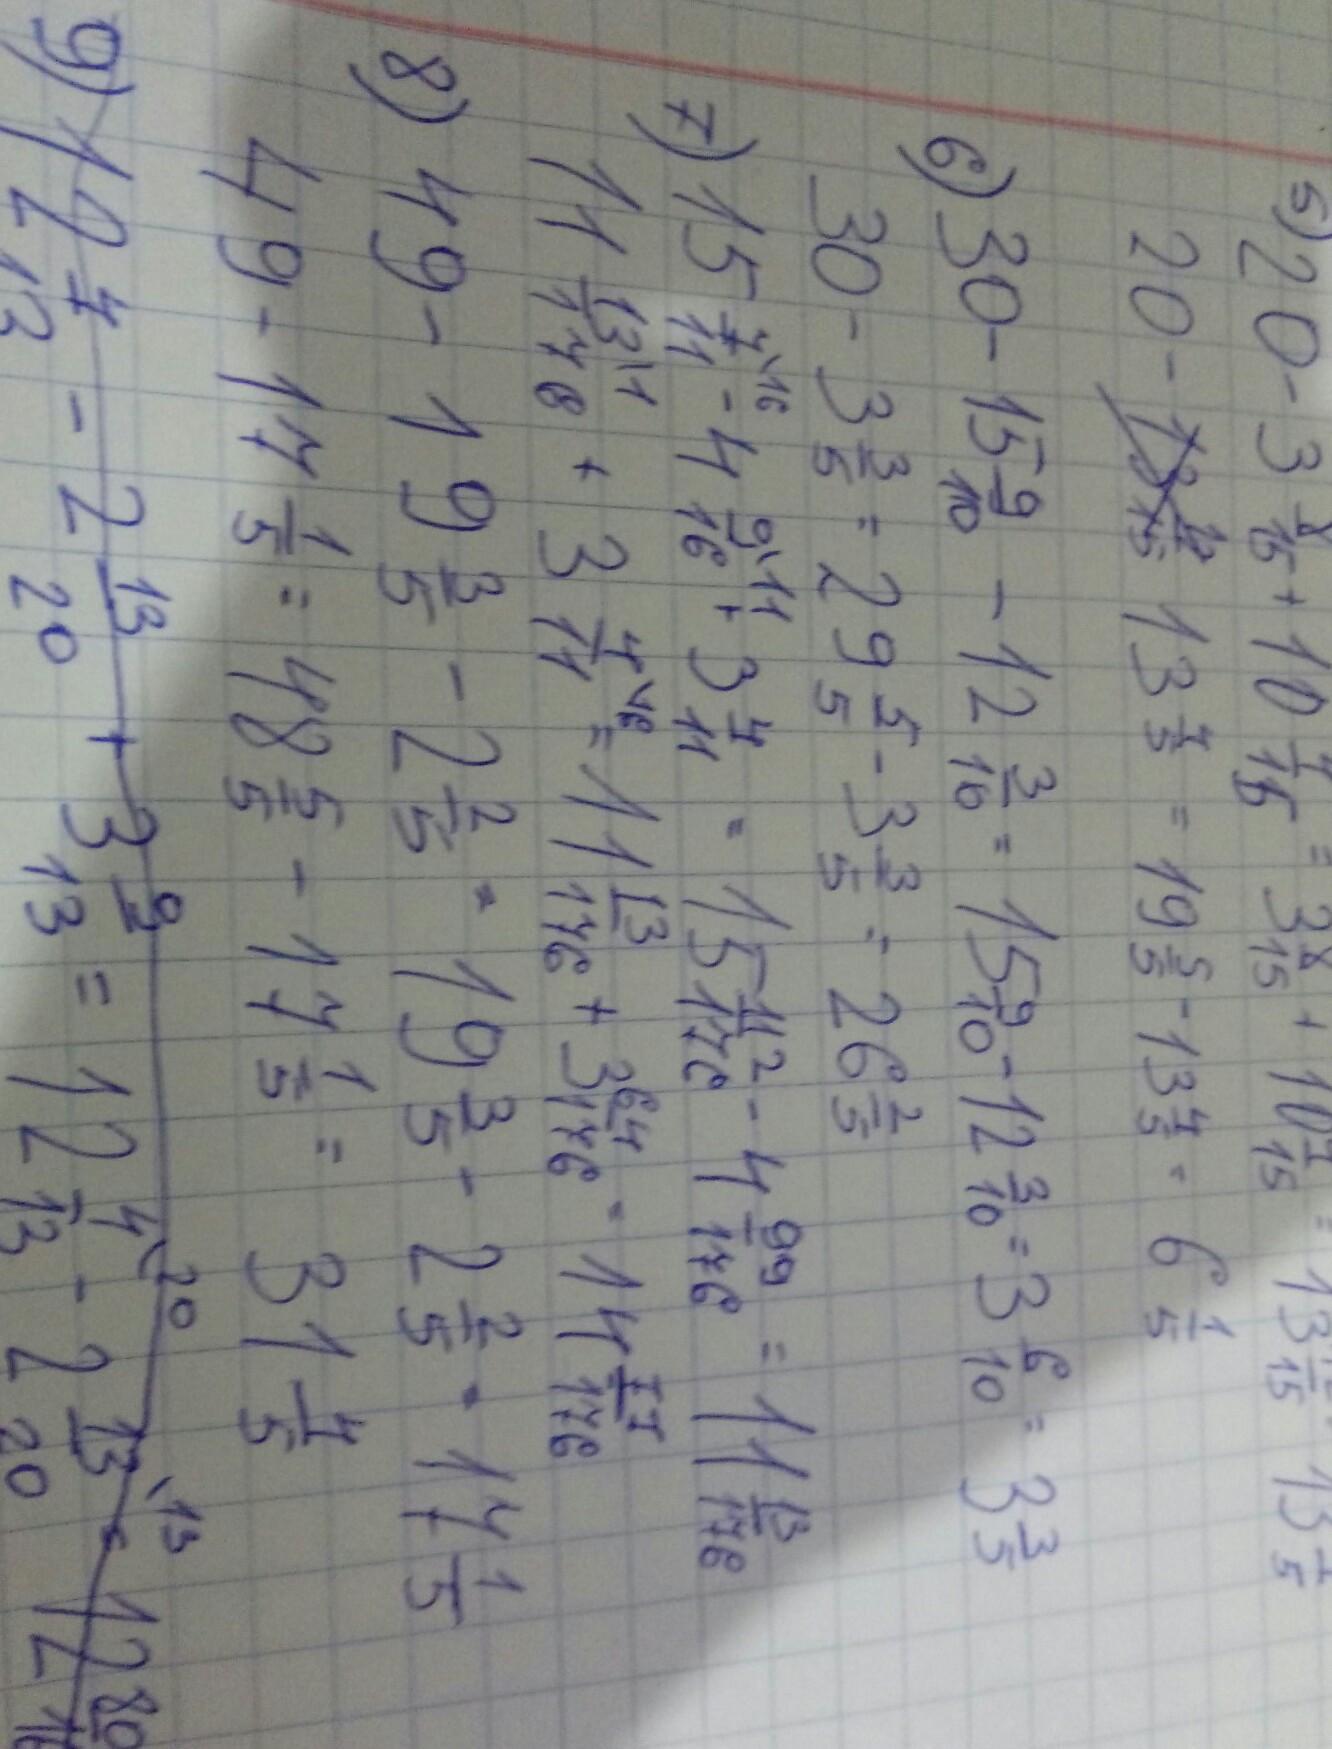 5) 20 - 3 8/15 + 10 4/15 = 3 8/15 + 10 4/15 = 13 12/15 = 13 4/5
20 - 13 4/5 = 19 5/5 - 13 4/5 = 6 1/5
6) 30 - 15 9/10 - 12 3/10 = 15 9/10 - 12 3/10 = 3 6/10 = 3 3/5
30 - 3 3/5 = 29 5/5 - 3 3/5 = 26 2/5
7) 15 7\16/11 - 4 9\11/16 + 3 4/11 = 15 112/176 - 4 99/176 = 11 13/176
11 13\1/176 + 3 4\16/11 = 11 13/176 + 3 64/176 = 14 77/176
8) 49 - 19 3/5 - 2 2/5 = 19 3/5 - 2 2/5 = 17 1/5
49 - 17 1/5 = 48 5/5 - 17 1/5 = 31 4/5
9) 12 4/13 - 2 13/20 + 3 9/13 = 12 4\20/13 - 2 13\13/20 = 12 80